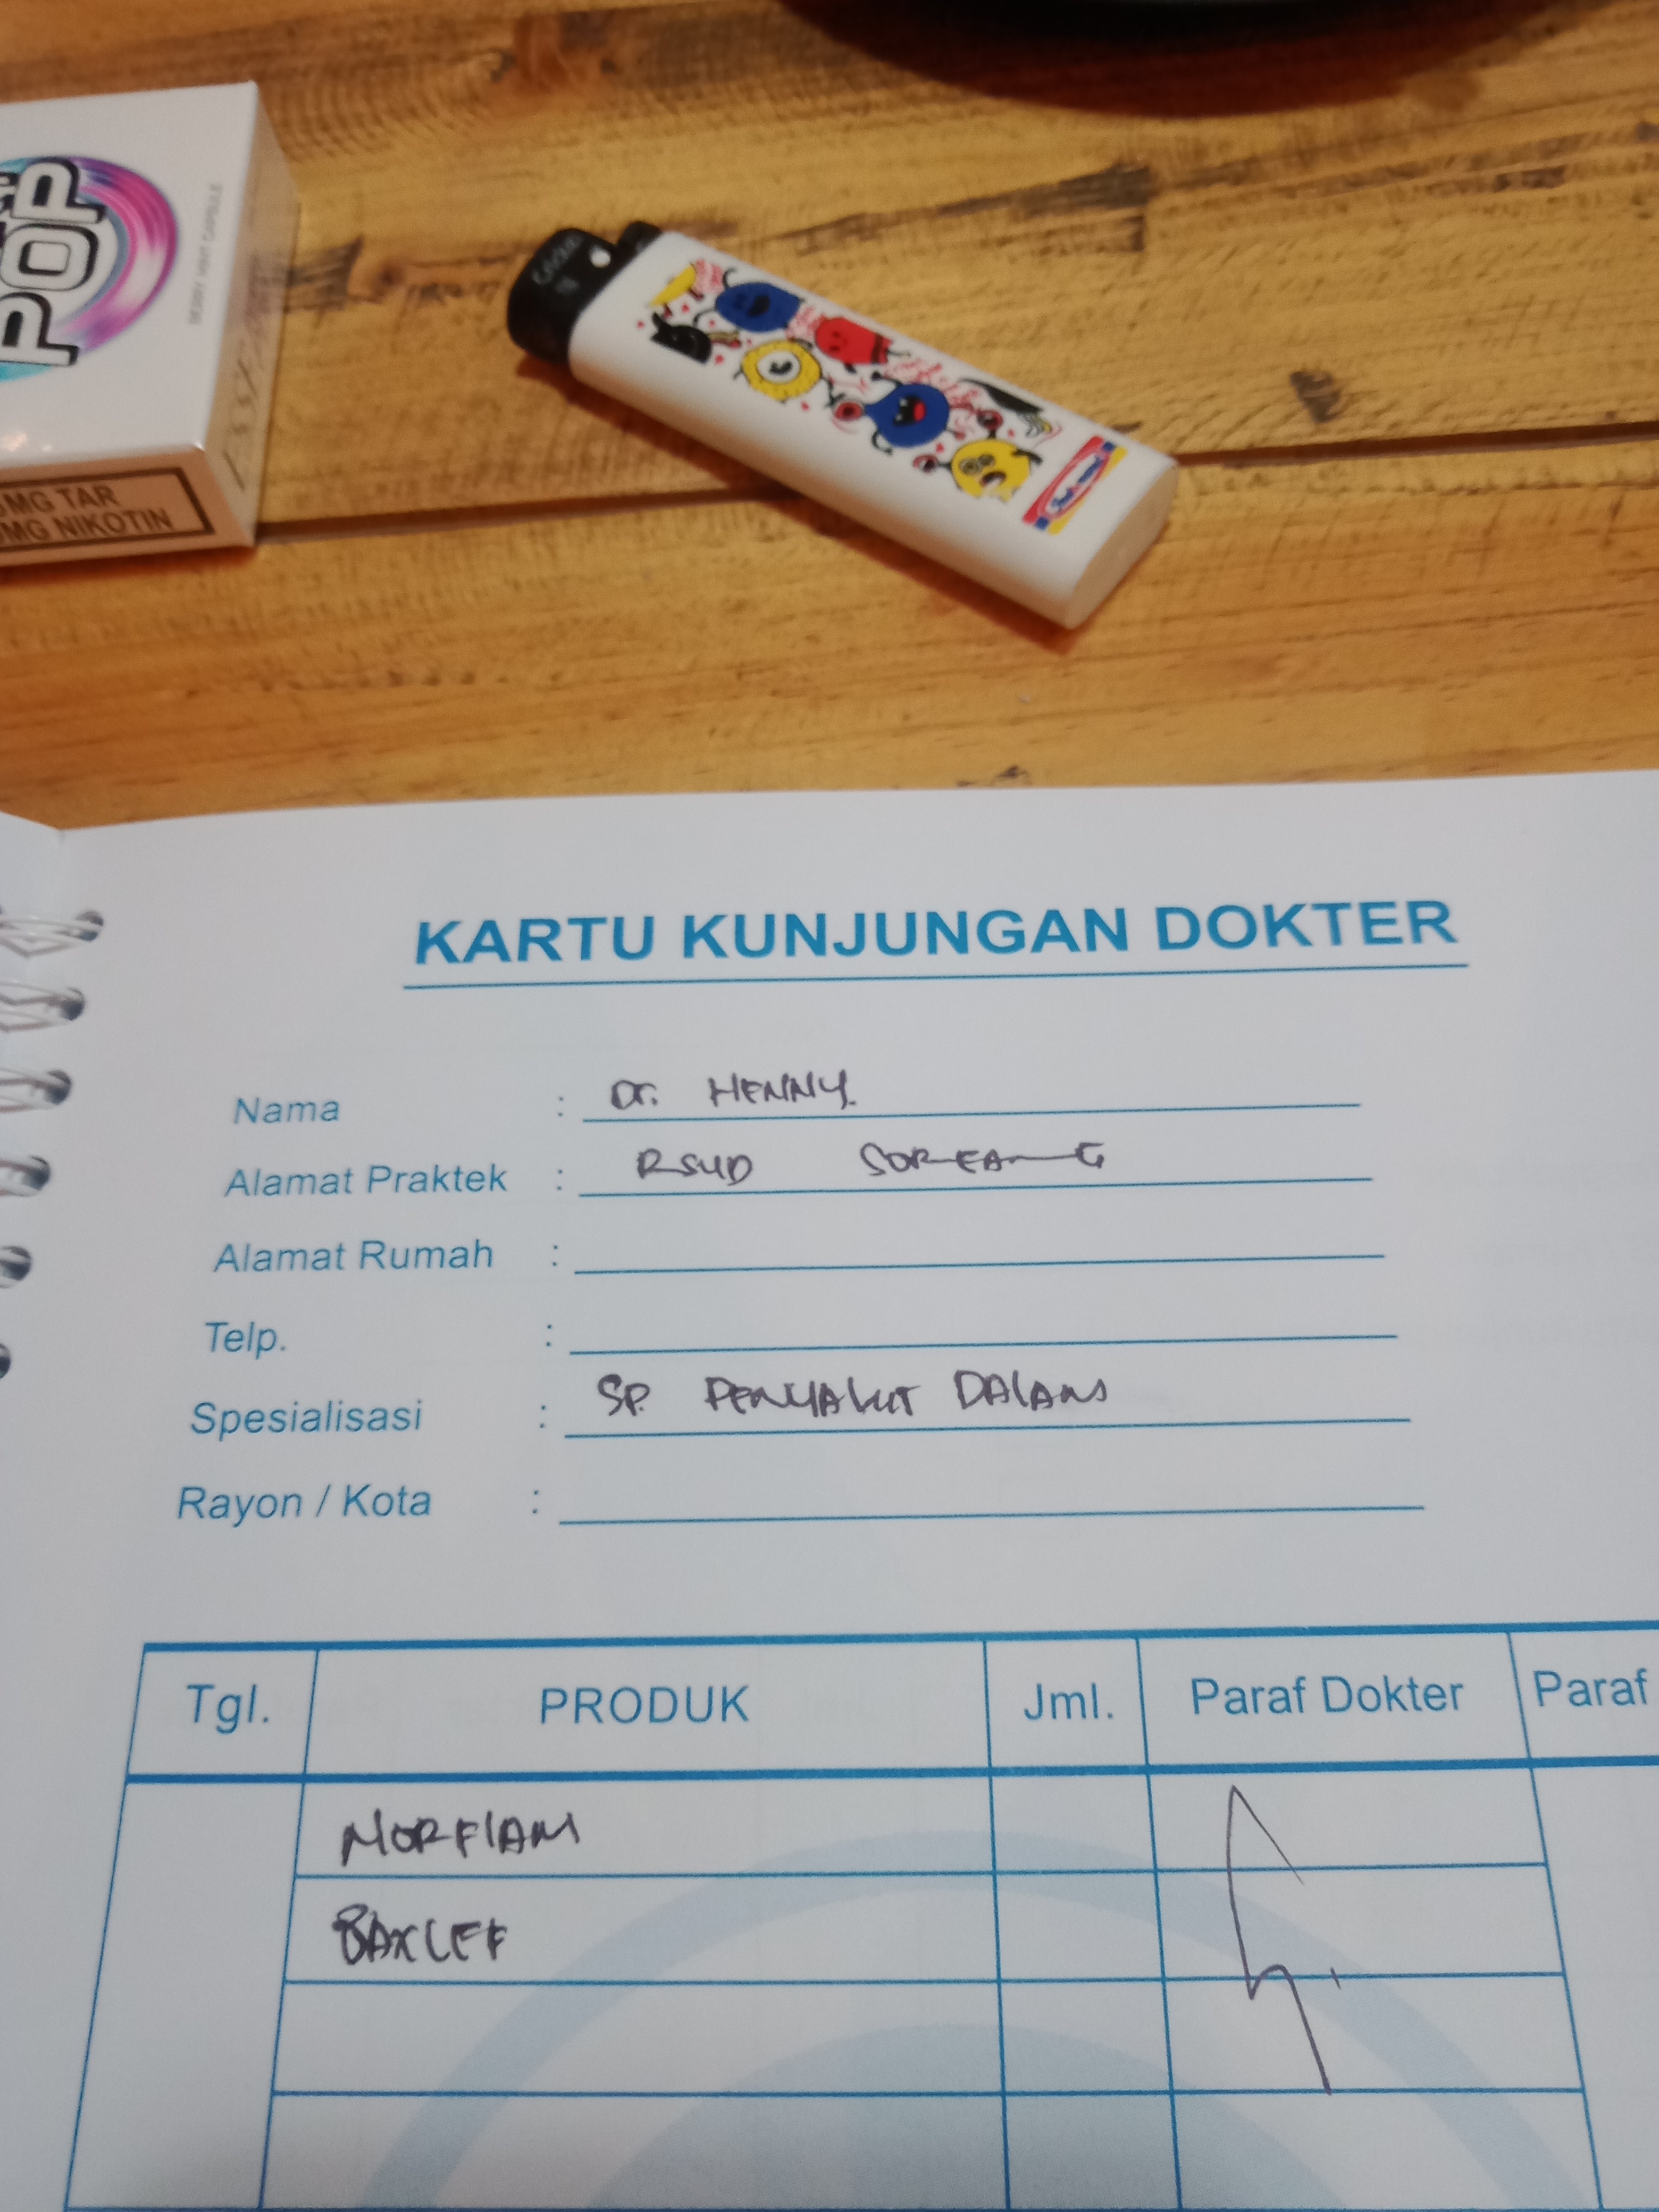 POP
BERRY MINT CAPSULE
MG TAR
MG NIKOTIN
KARTU KUNJUNGAN DOKTER
Nama : Dr. HENNY.
Alamat Praktek : RSUD SOREANG
Alamat Rumah :
Telp. :
Spesialisasi : SP. PENYAKIT DALAM
Rayon / Kota :
Tgl. PRODUK Jml. Paraf Dokter Paraf
NORFLAM
BAXCEF